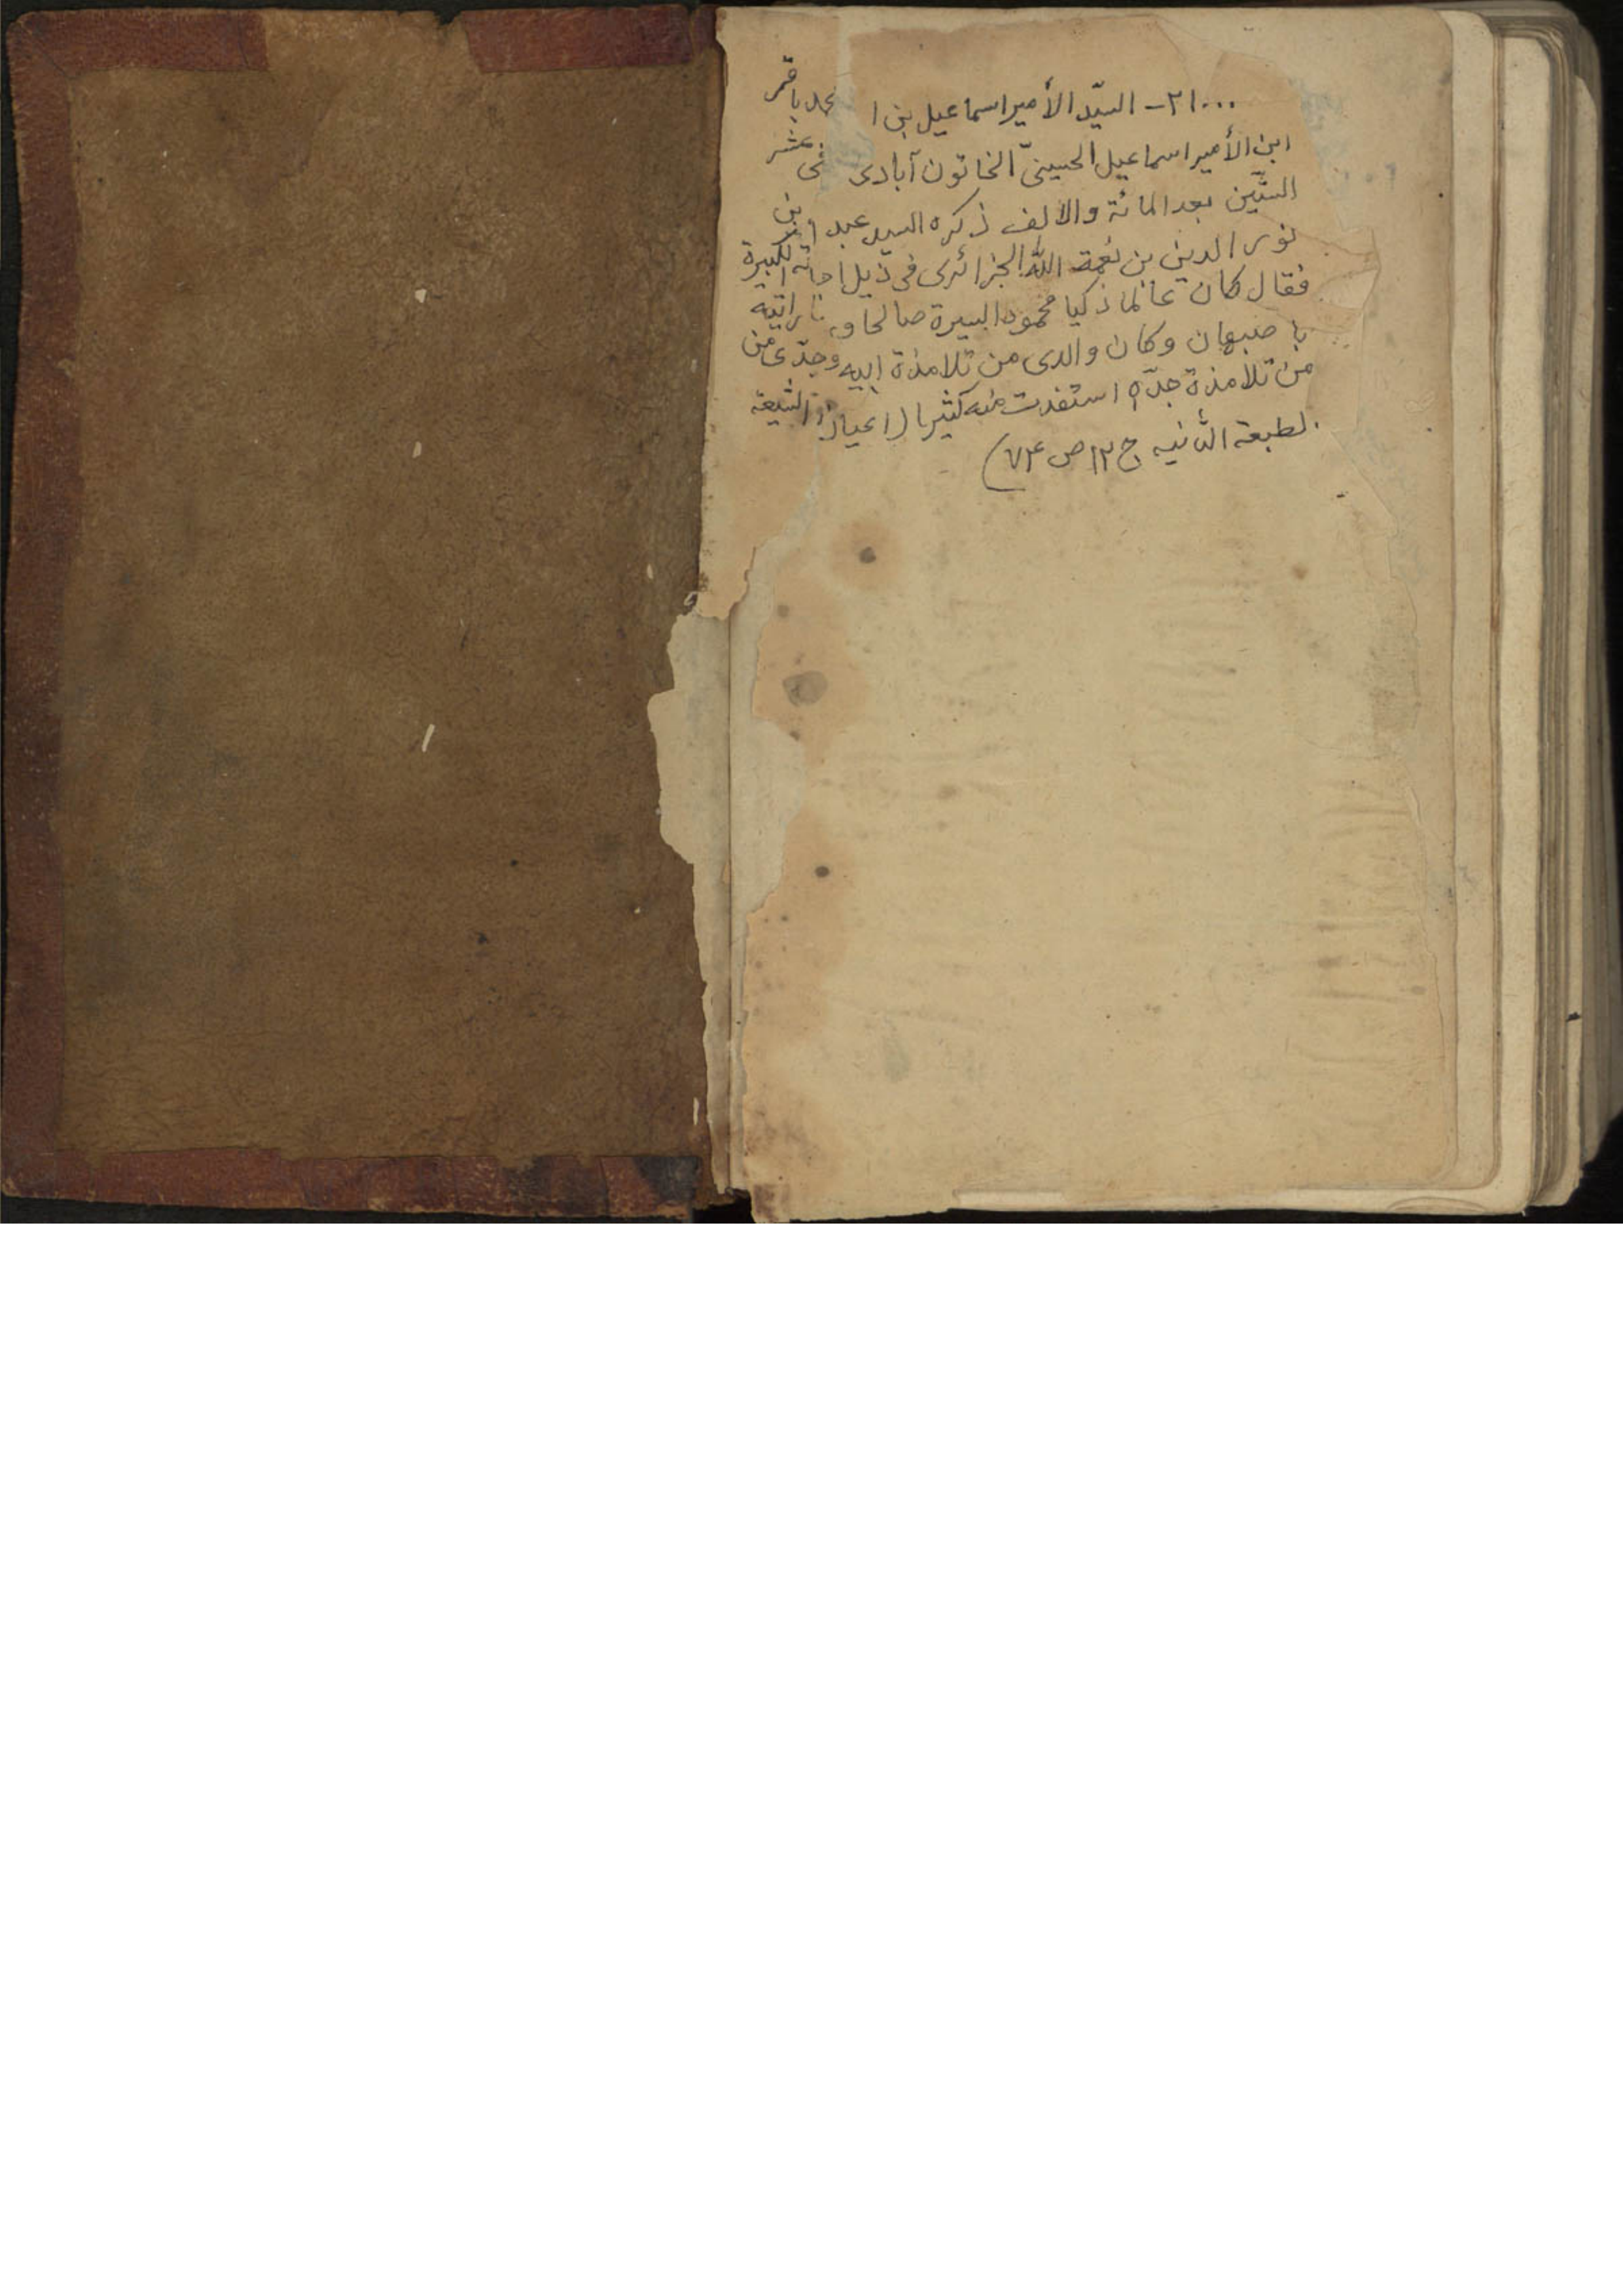 ٢١٠٠٠ - السيّد الأمير اسماعيل بن ا محمد باقر
ابن الأمير اسماعيل الحسينيّ الخاتون آبادى نى عشر
الستّين بعد المائة والالف ذكره السيد عبد بن
نور الدين بن نعمة اللّه الجزائرى فى ذيل اجا ته الكبيرة
فقال كان عالما ذكيا محمود السيرة صالحا و رايته
باصبهان وكان والدى من تلامذة ابيه وجدّى من
من تلامذة جدّه استفدت منه كثيرا (اعيان الشيعة
لطبعة الثانيه ج ١٢ ص ٧٤)